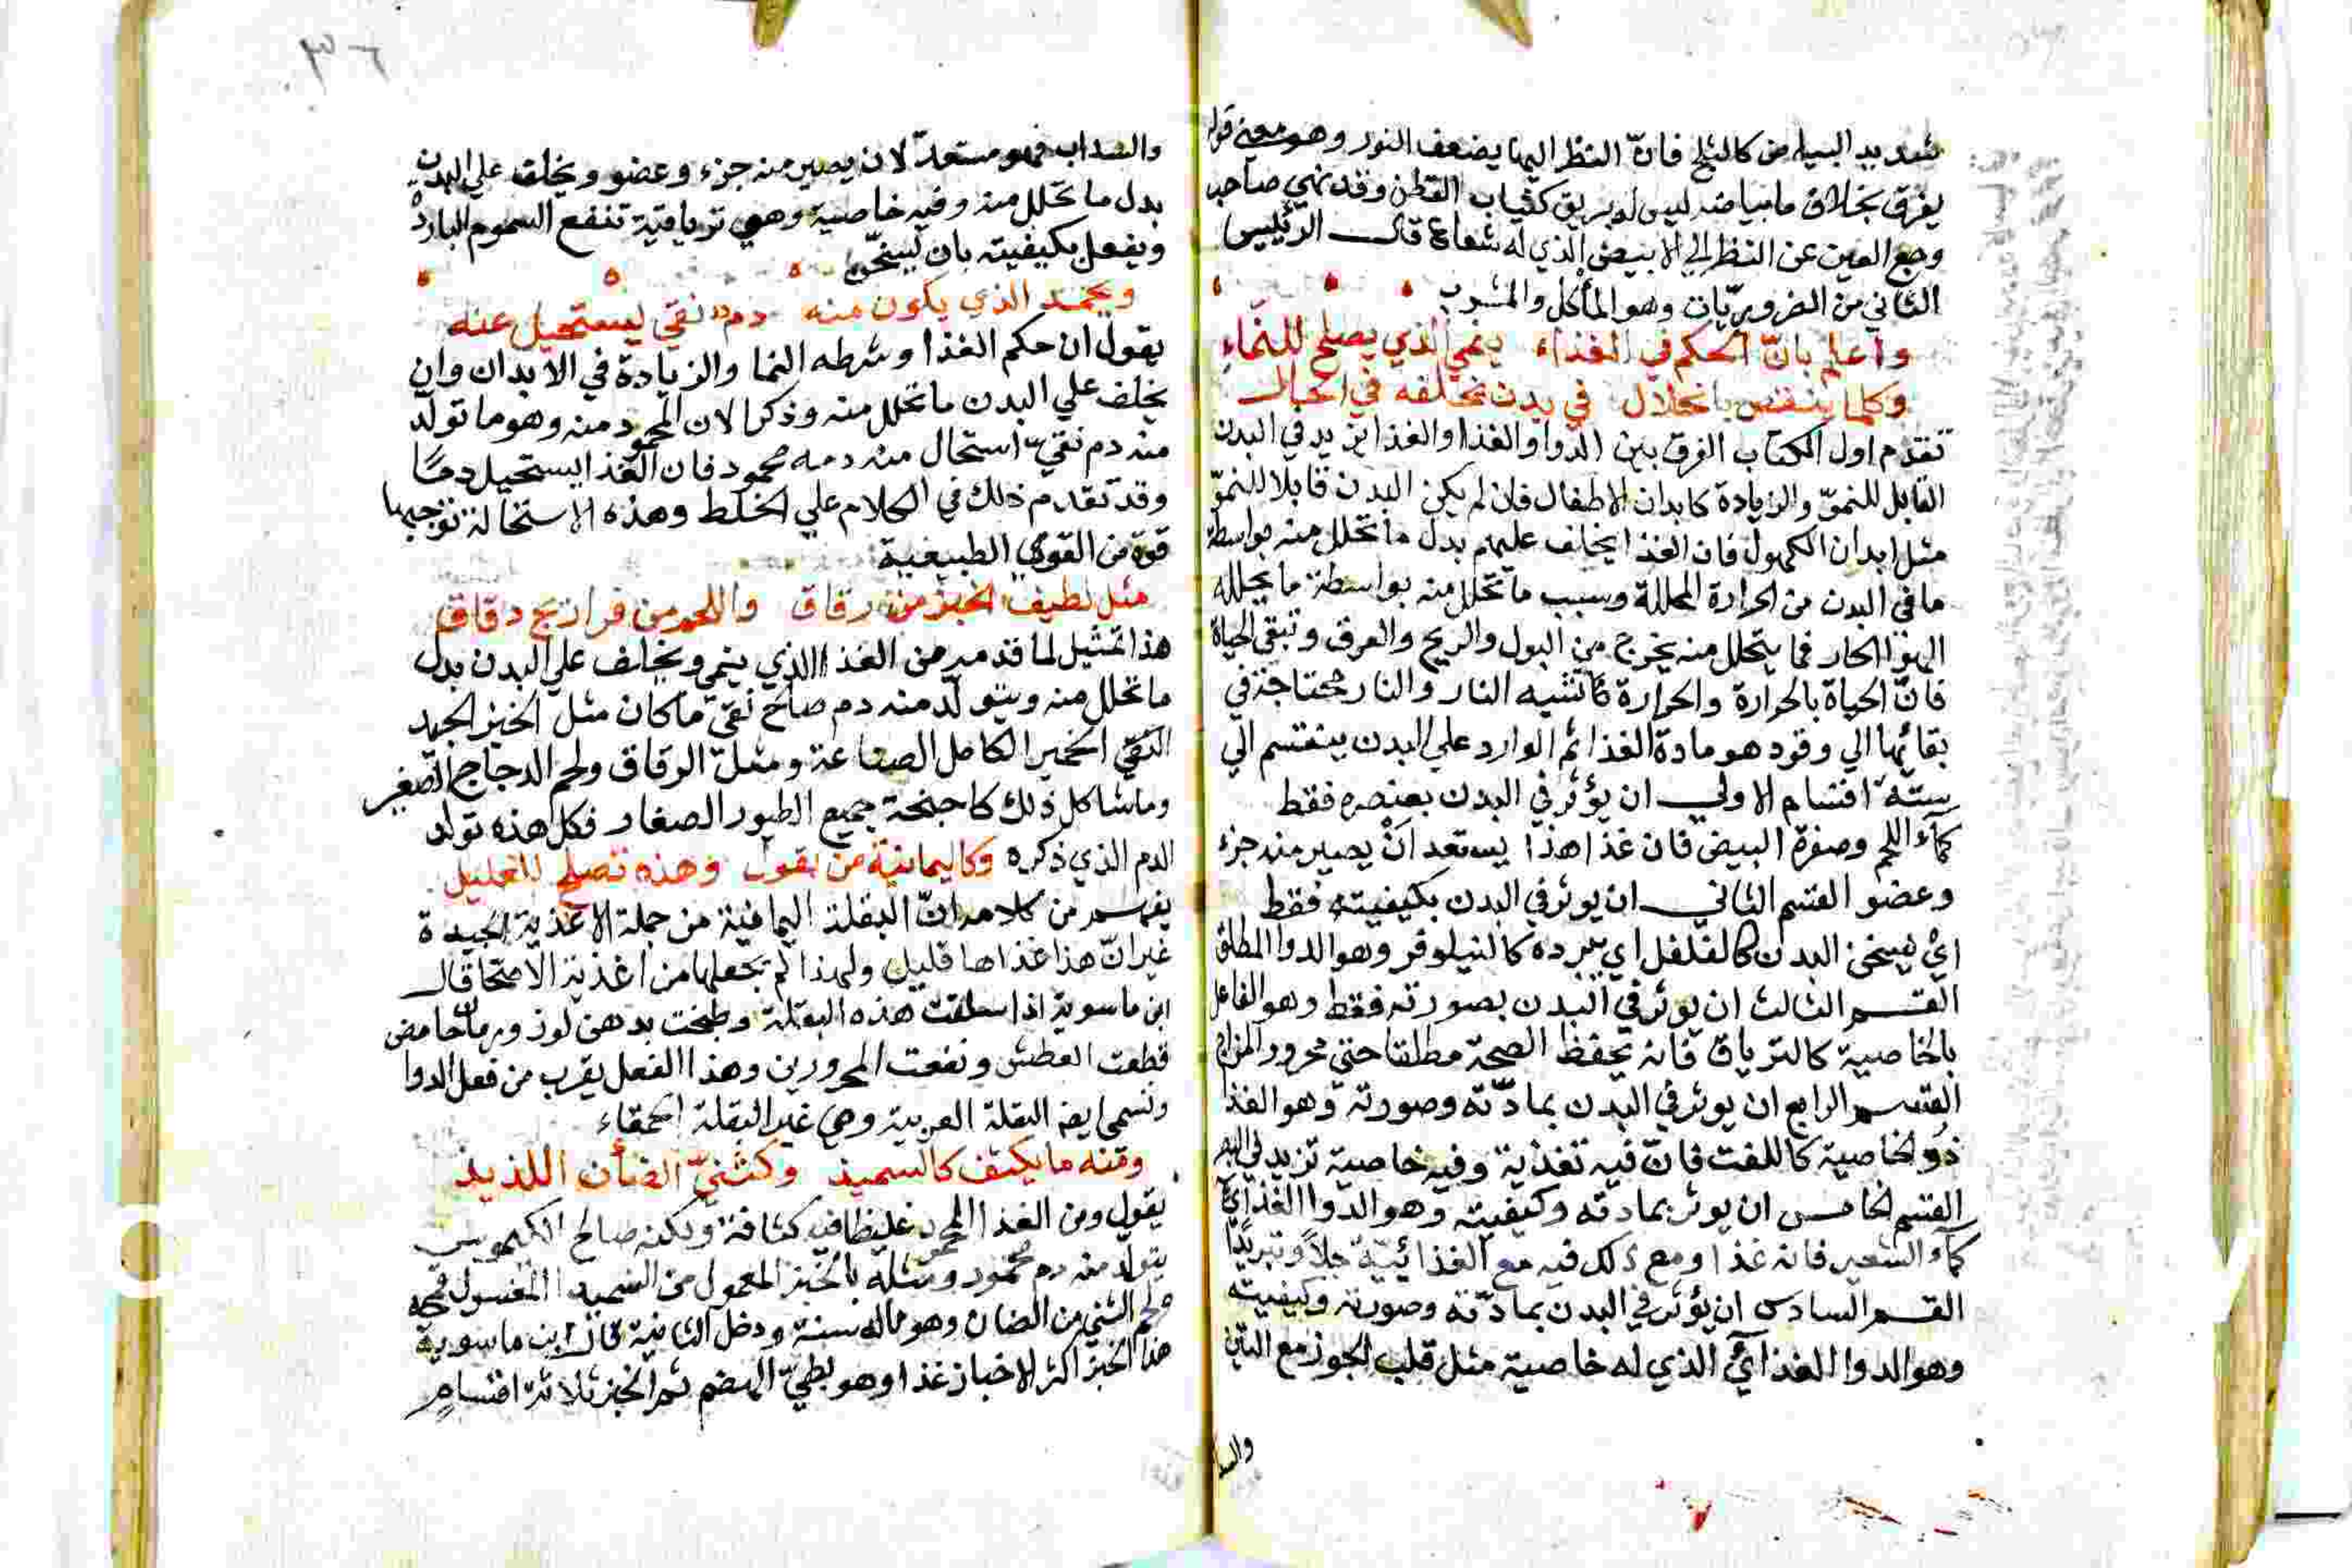 شديد البياض كالثلج فانّ النظر اليها يضعف النور وهو معني قوله
يفرق بخلاق ما بياضه ليس له بريق كثياب القطن وقد نهي صاحب
وجع العين عن النظر الي الابيض الذي له شعاع قال الرئيس
الثاني من الضروريّات وهو المأكل والمشرب
واعلم بانّ الحكم في الغذاء ينمي الذي يصلح للنّماء
وكلما ينقص بانحلال في بدن تخلفه في الحال
تقدم اول الكتاب الفرق بين الدوا والغذا والغذا يزيد في البدن
القابل للنموّ والزيادة كابدان الاطفال فان لم يكن البدن قابلا للنموّ
مثل ابدان الكهول فان الغذا يخلف عليهم بدل ما تحلل منه بواسطة
ما في البدن من الحرارة المحللة وسبب ما تحلل منه بواسطة ما يحلله
الهوا الحار فما يتحلل منه يخرج من البول والريح والعرق وتبقي الحياة
فانّ الحياة بالحرارة والحرارة كانشبه النار والنار محتاجة في
بقائها الي وقود هو مادة الغذا ثم الوارد علي البدن ينقسم الي
ستّة اقسام الاولي ان يؤثر في البدن بعنصره فقط
كمآء اللحم وصفرة البيض فان غذا هذا يستعد انْ يصير منه جزء
وعضو القسم الثاني ان يوثر في البدن بكيفيته فقط
ايْ يسخن البدن كالفلفل اي يبرده كالنيلوفر وهو الدوا المطلق
القسم الثالث ان يوثر في البدن بصورته فقط وهو الفاعل
بالخاصية كالترياق فانه يحفظ الصحة مطلقا حتي محرور المزاج
القسم الرابع ان يوثر في البدن بمادّته وصورته وهو الغذا
ذو الخاصية كاللفت فانّ فيه تغذية وفيه خاصية تزيد في البصر
القسم الخامس ان يوثر بمادته وكيفيته وهو الدوا الغذائي
كمآء الشعير فانه غذا ومع ذلك فيه مع الغذائيّة جلاً وتبريدًا
القسم السادس ان يؤثر في البدن بمادّته وصورته وكيفيته
وهو الدوا الغذائي الذي له خاصية مثل قلب الجوز مع التين
والسدا
٣٦
والسداب فهو مستعدّ لان يصير منه جزء وعضو ويخلف علي البدن
بدل ما تحلل منه وفيه خاصية وهي ترياقية تنفع السموم الباردة
ويفعل بكيفيته بان يسخّن
ويحمد الذي يكون منه دم نقي يستحيل عنه
يقول ان حكم الغذا وشرطه النما والزيادة في الابدان وان
يخلف علي البدن ما تحلل منه وذكر الان المحمود منه وهو ما تولّد
منه دم نقيّ استحال منه دمه محمود فان الغذا يستحيل دمًا
وقد تقدم ذلك في الكلام علي الخلط وهذه الاستحالة توجبها
قوة من القوي الطبيعية
مثل لطيف الخبز من رقاق واللحم من فراريج دقاق
هذا تمثيل لما قدمه من الغذا الذي ينمي ويخلف علي البدن بدل
ما تحلل منه ويتولّد منه دم صالح نقيّ ما كان مثل الخبز الجيد
النقي الخمير الكامل الصناعة ومثل الرقاق ولحم الدجاج الصغير
وما شاكل ذلك كاجنحة جميع الطيور الصغار فكل هذه تولد
الدم الذي ذكره وكاليمانية من بقول وهذه تصلح للعليل
يفهم من كلامه انّ البقلة اليمانية من جملة الاغذية الجيدة
غير انّ هذا غذاها قليل ولهذا لم يجعلها من اغذية الاصحا قال
ابن ماسوية اذا سلقت هذه البقلة وطبخت بدهن لوز ورمان حامض
قطعت العطش ونفعت المحرورين وهذا الفعل يقرب من فعل الدوا
وتسمي ايضا البقلة العربية وهي غير البقلة الحمقاء
ومنه ما يكثف كالسميذ وكثنيّ الضأن اللذيذ
يقول ومن الغذا المحمود غليظا فيه كثافة ولكنه صالح الكيموس
يتولّد منه دم محمود ومثله بالخبز المعمول من السميد المغسول قمحه
ولحم الثني من الضان وهو ماله سنة ودخل الثانية قال ابن ماسوية
هذا الخبز اكثر الاخباز غذا وهو بطيّ الهضم ثم الخبز ثلاثة اقسام